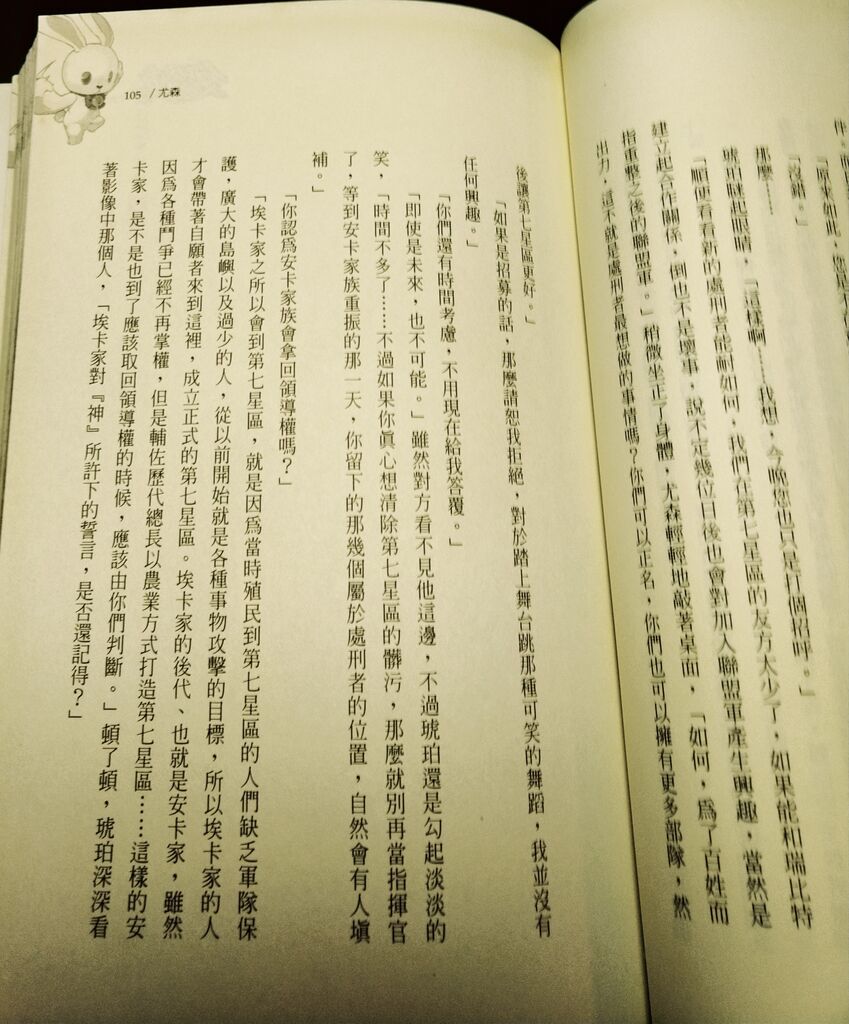 伴，
「原來如此，您是不
「沒錯。」
那麼……
琥珀瞇起眼睛，「這樣啊……我想，今晚您也只是打個招呼。」
「順便看看新的處刑者能耐如何，我們在第七星區的友方太少了，如果能和瑞比特
建立起合作關係，倒也不是壞事，說不定幾位日後也會對加入聯盟軍產生興趣，當然是
指重整之後的聯盟軍。」稍微坐正了身體，尤森輕輕地敲著桌面，「如何，為了百姓而
出力，這不就是處刑者最想做的事情嗎？你們可以正名，你們也可以擁有更多部隊，然
105 /尤森
後讓第七星區更好。」
「如果是招募的話，那麼請恕我拒絕，對於踏上舞台跳那種可笑的舞蹈，我並沒有
任何興趣。」
「你們還有時間考慮，不用現在給我答覆。」
「即使是未來，也不可能。」雖然對方看不見他這邊，不過琥珀還是勾起淡淡的
笑，「時間不多了……不過如果你真心想清除第七星區的髒污，那麼就別再當指揮官
了，等到安卡家族重振的那一天，你留下的那幾個屬於處刑者的位置，自然會有人填
補。」
「你認為安卡家族會拿回領導權嗎？」
「埃卡家之所以會到第七星區，就是因為當時殖民到第七星區的人們缺乏軍隊保
護，廣大的島嶼以及過少的人，從以前開始就是各種事物攻擊的目標，所以埃卡家的人
才會帶著自願者來到這裡，成立正式的第七星區。埃卡家的後代、也就是安卡家，雖然
因為各種鬥爭已經不再掌權，但是輔佐歷代總長以農業方式打造第七星區……這樣的安
卡家，是不是也到了應該取回領導權的時候，應該由你們判斷。」頓了頓，琥珀深深看
著影像中那個人，「埃卡家對『神』所許下的誓言，是否還記得？」